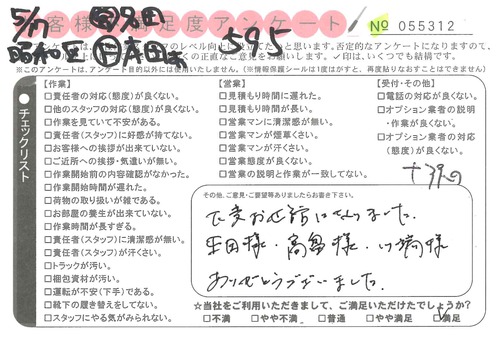 5/17
お客様満足度アンケート
№ 055312
昭和区
595
※このアンケートは、アンケート目的以外には使用いたしません。(※情報保護シールは1度はがすと、再度貼りなおすことはできません)
チェックリスト
【作業】
□責任者の対応(態度)が良くない。
□他のスタッフの対応(態度)が良くない。
□作業を見ていて不安がある。
□責任者(スタッフ)に好感が持てない。
□お客様への挨拶が出来ていない。
□ご近所への挨拶・気遣いが無い。
□作業開始前の内容確認がなかった。
□作業開始時間が遅れた。
□荷物の取り扱いが雑である。
□お部屋の養生が出来ていない。
□作業時間が長すぎる。
□責任者(スタッフ)に清潔感が無い。
□責任者(スタッフ)が汗くさい。
□トラックが汚い。
□梱包資材が汚い。
□運転が不安(下手)である。
□靴下の履き替えをしてない。
□スタッフにやる気がみられない。
【営業】
□見積もり時間に遅れた。
□見積もり時間が長い。
□営業マンに清潔感が無い。
□営業マンが煙草くさい。
□営業マンが汗くさい。
□営業態度が良くない。
□営業の説明と作業が一致してない。
【受付・その他】
□電話の対応が良くない。
□オプション業者の説明
・作業が良くない。
□オプション業者の対応
(態度)が良くない。
その他、ご意見・ご要望等ありましたらお書き下さい。
大変お世話になりました。
ありがとうございました。
☆当社をご利用いただきまして、ご満足いただけたでしょうか?
□不満 □やや不満 □普通 □やや満足 ☑満足